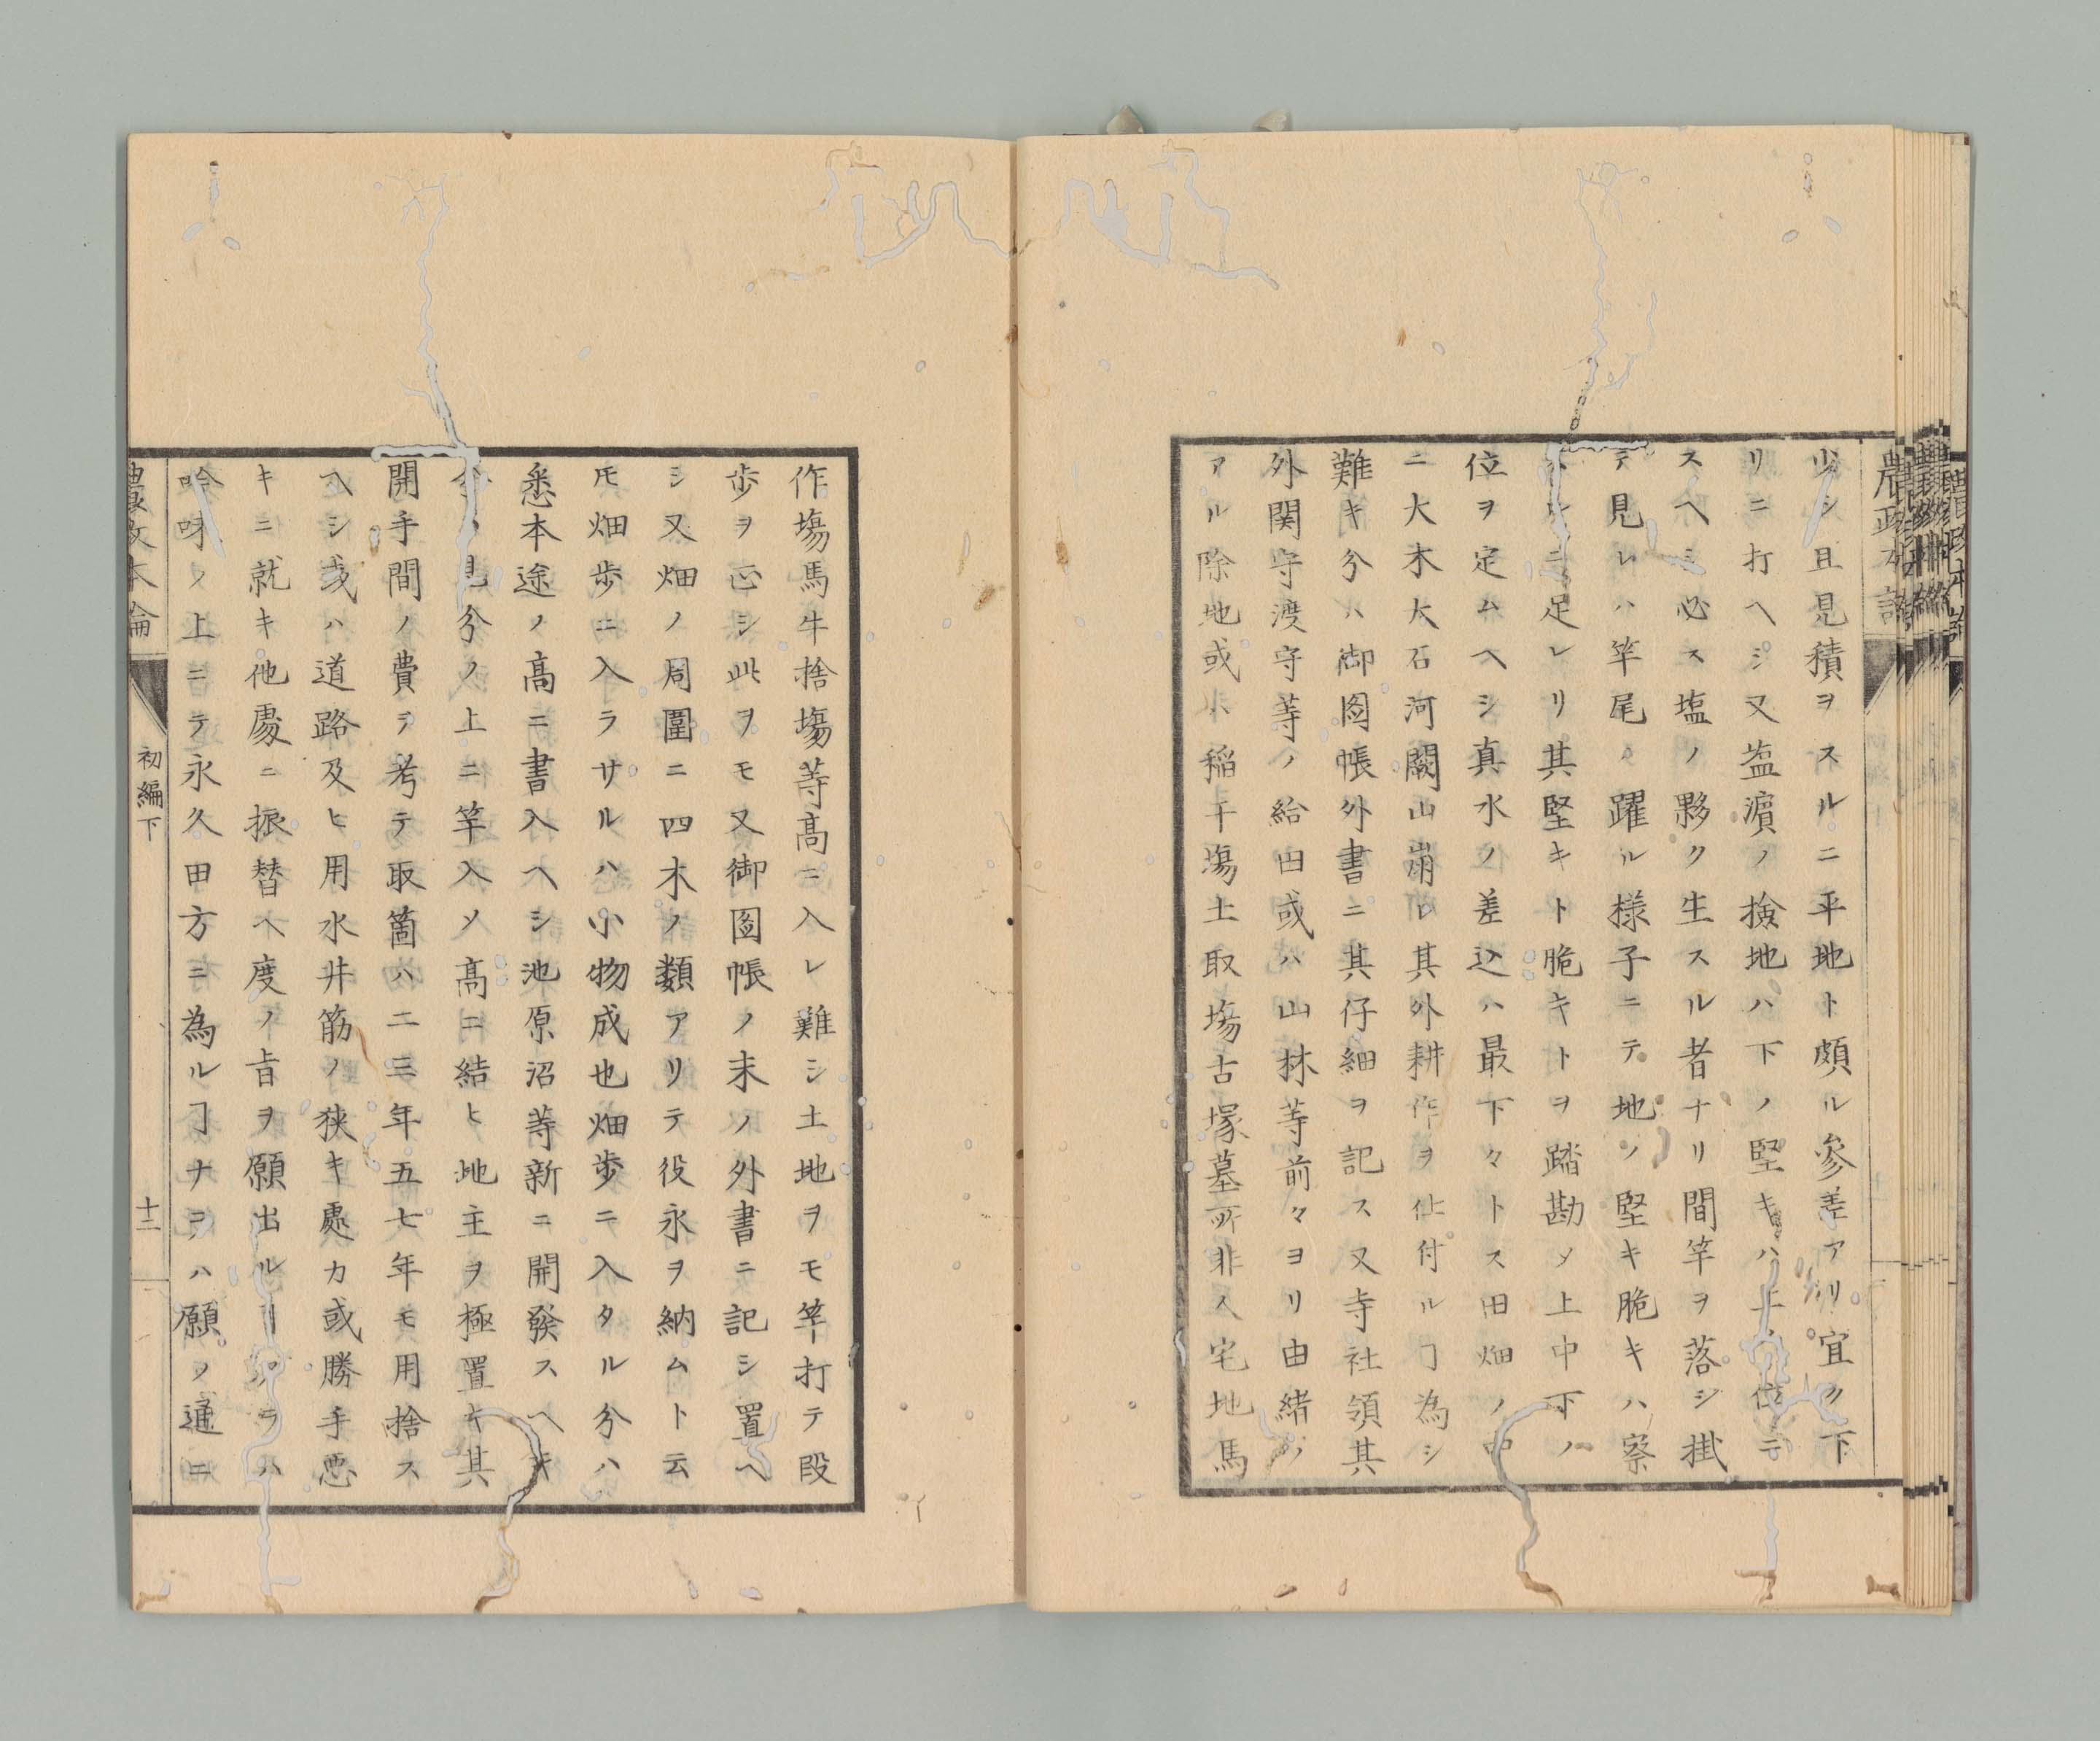 少シ且見積ヲスルニ平地ト頗ル參差アリ宜ク下
リニ打ヘシ又盬濵ノ撿地ハ下ノ堅キハ上ノ位ニ
スヘシ必ス塩ノ夥ク生スル者ナリ間竿ヲ落シ掛
テ見レハ竿尾ノ躍ル様子ニテ地ノ堅キ脆キハ察
スルニ足レリ其堅キト脆キトヲ踏勘メ上中下ノ
位ヲ定ムヘシ真水ノ差込ハ最下々トス田畑ノ中
ニ大木大石河闕山崩レ其外耕作ヲ仕付ルヿ為シ
難キ分ハ御图帳外書ニ其仔細ヲ記ス又寺社領其
外関守渡守等ノ給田或ハ山林等前々ヨリ由緒ノ
アル除地或ハ稲干塲土取塲古塚墓所非人宅地馬
作塲馬牛捨塲等髙ニ入レ難シ土地ヲモ竿打テ段
歩ヲ正シ此ヲモ又御图帳ノ末ノ外書ニ記シ置ヘ
シ又畑ノ周圍ニ四木ノ類アリテ役永ヲ納ムト云
𪜈畑歩ニ入ラサルハ小物成也畑歩ニ入タル分ハ
悉本途ノ髙ニ書入ヘシ池原沼等新ニ開發スヘキ
分ハ見分ノ上ニ竿入メ髙ニ結ヒ地主ヲ極置キ其
開手間ノ費ヲ考テ取箇ハ二三年五七年モ用捨ス
ヘシ或ハ道路及ヒ用水井筋ノ狹キ處カ或勝手悪
キニ就キ他處ニ振替ヘ度ノ旨ヲ願出ルヿアラハ
吟味ノ上ニテ永久田方ニ為ルヿナラハ願ノ通ニ
農政本論
初編下
十二